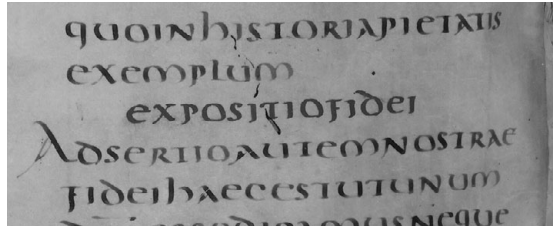 quoinhistoriapietatis
exemplum
expositiofidei
Adsertioautemnostrae
fideihaecestutunum
musneque